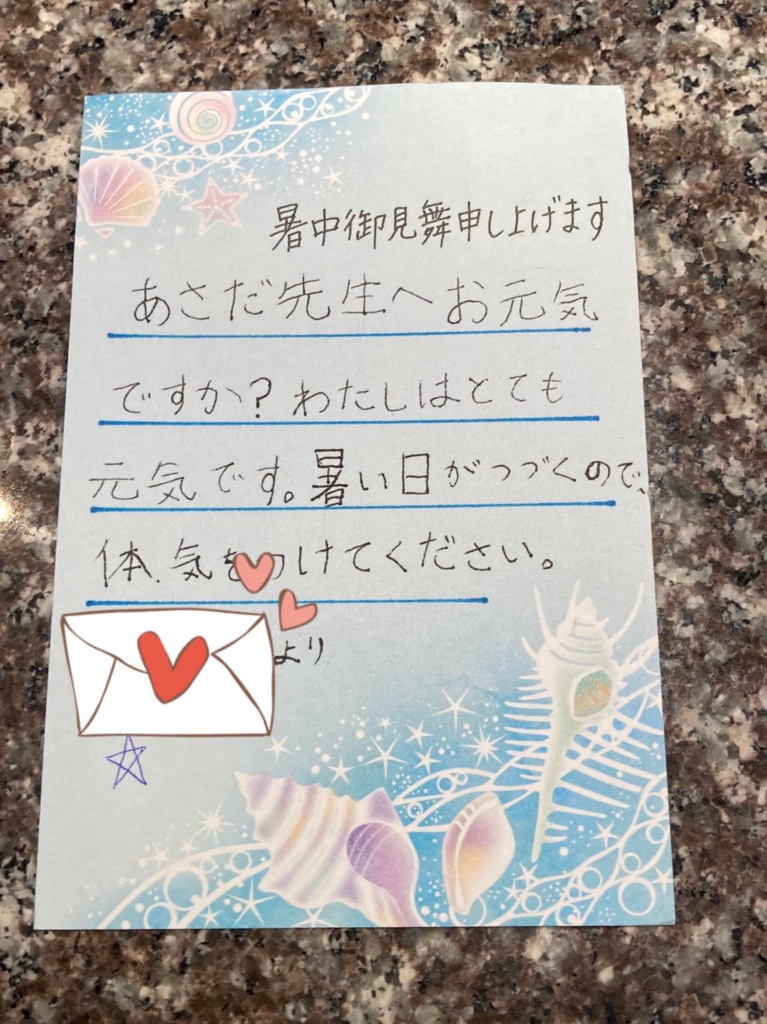 暑中御見舞申し上げます
あさだ先生へお元気
ですか？わたしはとても
元気です。暑い日がつづくので、
体、気をつけてください。
より